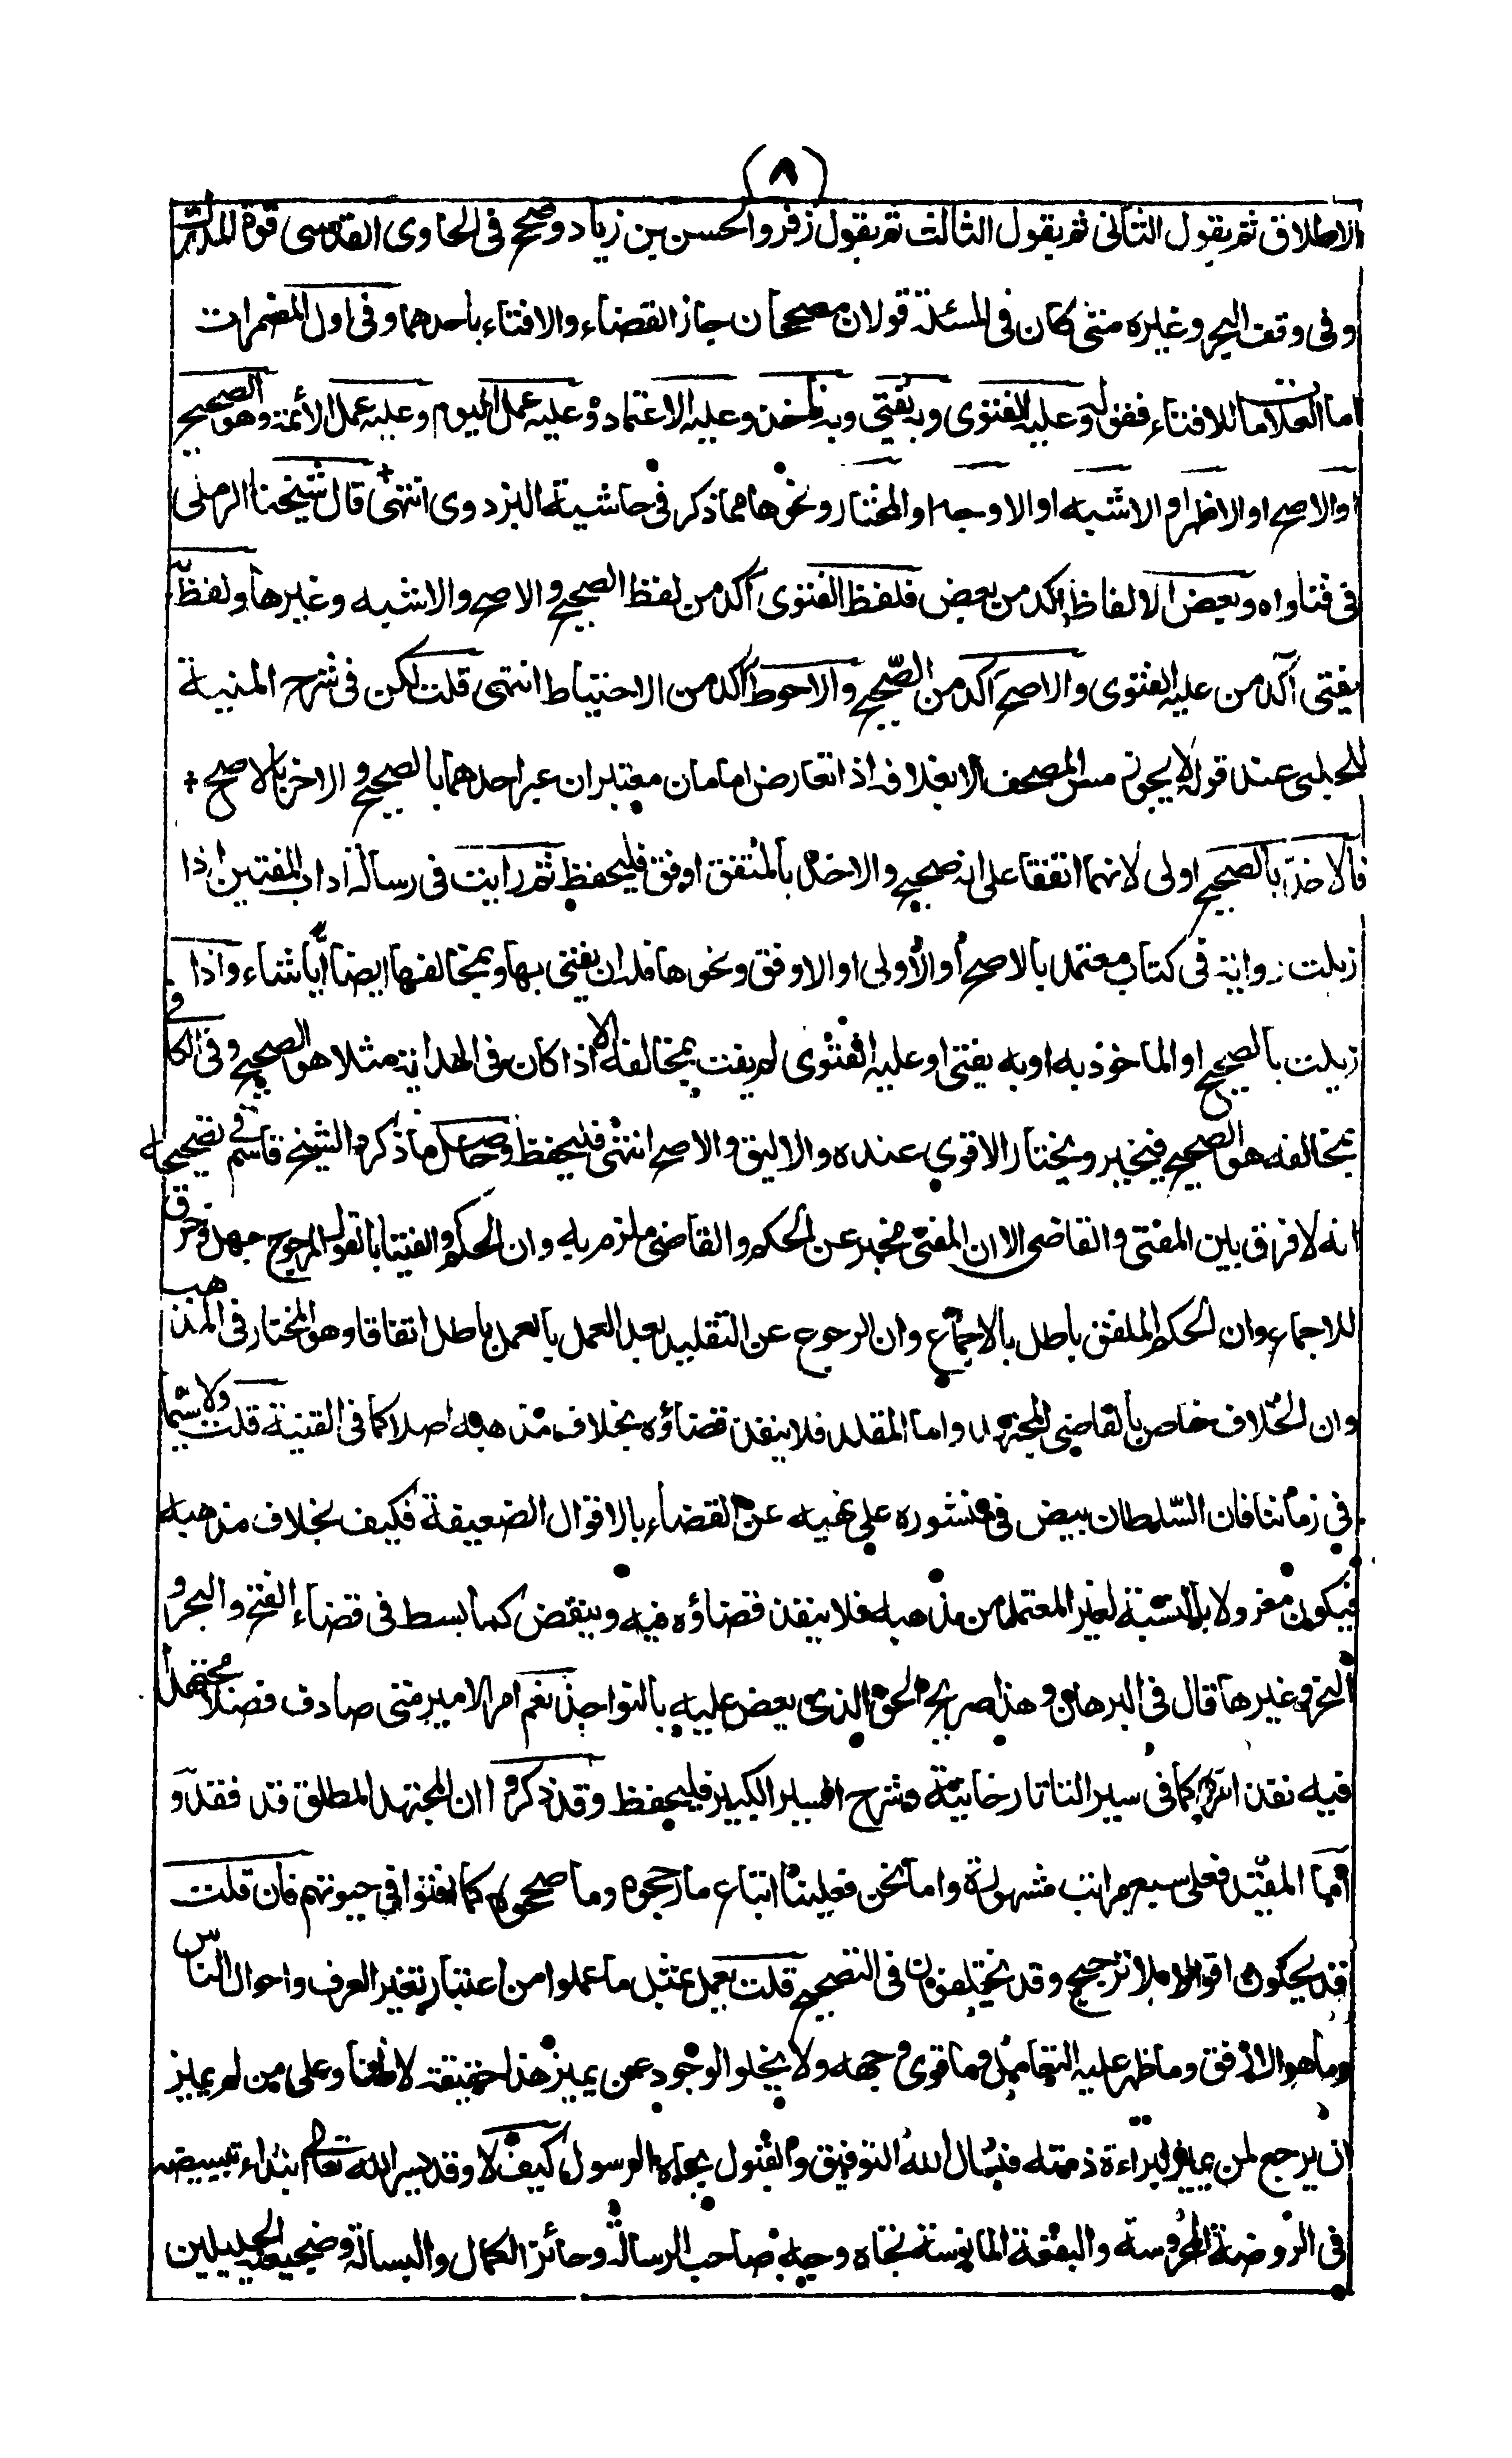 (٨)
الاطلاق ثم بقول الثانى ثم بقول الثالث ثم بقول زفر والحسن بن زياد وصحح فى الحاوى القدسى قوة المدرك
وفى وقف البحر وغيره متى كان فى المسئلة قولان مصححان جاز القضاء والافتاء باحدهما وفى اول المضمرات
اما العلامات للافتاء فقوله وعليه الفتوى وبه يفتى وبه ناخذ وعليه الاعتماد وعليه عمل اليوم وعليه عمل الأئمة وهو الصحيح
او الاصح او الاظهر او الاشبه او الاوجه او المختار ونحوها مما ذكر فى حاشية البزدوى انتهى قال شيخنا الرملى
فى فتاواه وبعض الالفاظ آكد من بعض فلفظ الفتوى آكد من لفظ الصحيح والاصح والاشبه وغيرها ولفظ
يفتى آكد من عليه الفتوى والاصح آكد من الصحيح والاحوط آكد من الاحتياط انتهى قلت لكن فى شرح المنية
للحلبى عند قوله لا يجوز مس المصحف الا بغلافه اذا تعارض امامان معتبران عبر احدهما بالصحيح والاخر بالاصح
فالاخذ بالصحيح اولى لانهما اتفقا على انه صحيح والاخذ بالمتفق اوفق فليحفظ ثم رايت فى رسالة اداب المفتين اذا
ذيلت رواية فى كتاب معتمد بالاصح أو الأولى او الاوفق ونحوها فله ان يفتى بها وبمخالفها ايضا أيّا شاء واذا
ذيلت بالصحيح او الماخوذ به او به يفتى او عليه الفتوى لم يفت بمخالفه الا اذا كان فى الهداية مثلا هو الصحيح وفى الكافى
بمخالفه هو الصحيح فيخير ويختار الاقوى عنده والاليق والاصح انتهى فليحفظ وحاصل ما ذكره الشيخ قاسم فى تصحيحه
انه لا فرق بين المفتى والقاضى الا ان المفتى مخبر عن الحكم والقاضى ملزم به وان الحكم والفتيا بالقول المرجوح جهل وخرق
للاجماع وان الحكم الملفق باطل بالاجماع وان الرجوع عن التقليد بعد العمل بالعمل باطل اتفاقا وهو المختار فى المذهب
وان الخلاف خاص بالقاضى المجتهد واما المقلد فلا ينفذ قضاؤه بخلاف مذهبه اصلا كما فى القنية قلت ولا سيما
فى زماننا فان السّلطان ينص فى منشوره على نهيه عن القضاء بالاقوال الضعيفة فكيف بخلاف مذهبه
فيكون معزولا بالنسبة لغير المعتمد من مذهبه فلا ينفذ قضاؤه فيه وينقض كما بسط فى قضاء الفتح والبحر و
النهر وغيرها قال فى البرهان وهذا صريح الحق الذى يعض عليه بالنواجذ نعم امر الامير متى صادف فصلا مجتهدا
فيه نفذ امره كما فى سير التاتارخانية وشرح السير الكبير فليحفظ وقد ذكروا ان المجتهد المطلق قد فقد و
أما المقيّد فعلى سبع مراتب مشهورة واما نحن فعلينا اتباع ما رجحوه وما صححوه كما افتوا فى حيوتهم فان قلت
قد يحكون اقوالا بلا ترجيح وقد يختلفون فى التصحيح قلت يعمل بمثل ما عملوا من اعتبار تغير العرف واحوال الناس
وما هو الارفق وما ظهر عليه التعامل وما قوى وجهه ولا يخلو الوجود عمن يميز هذا حقيقة لا ظنا وعلى من لم يميز
ان يرجع لمن يميز لبراءة ذمته فنسال الله التوفيق والقبول بجاه الرسول كيف لا وقد يسر الله تعالى ابتداء تبييضه
فى الروضة المحروسة والبقعة المانوسة تجاه وجه صاحب الرسالة وحائز الكمال والبسالة وضجيعيه الجليلين